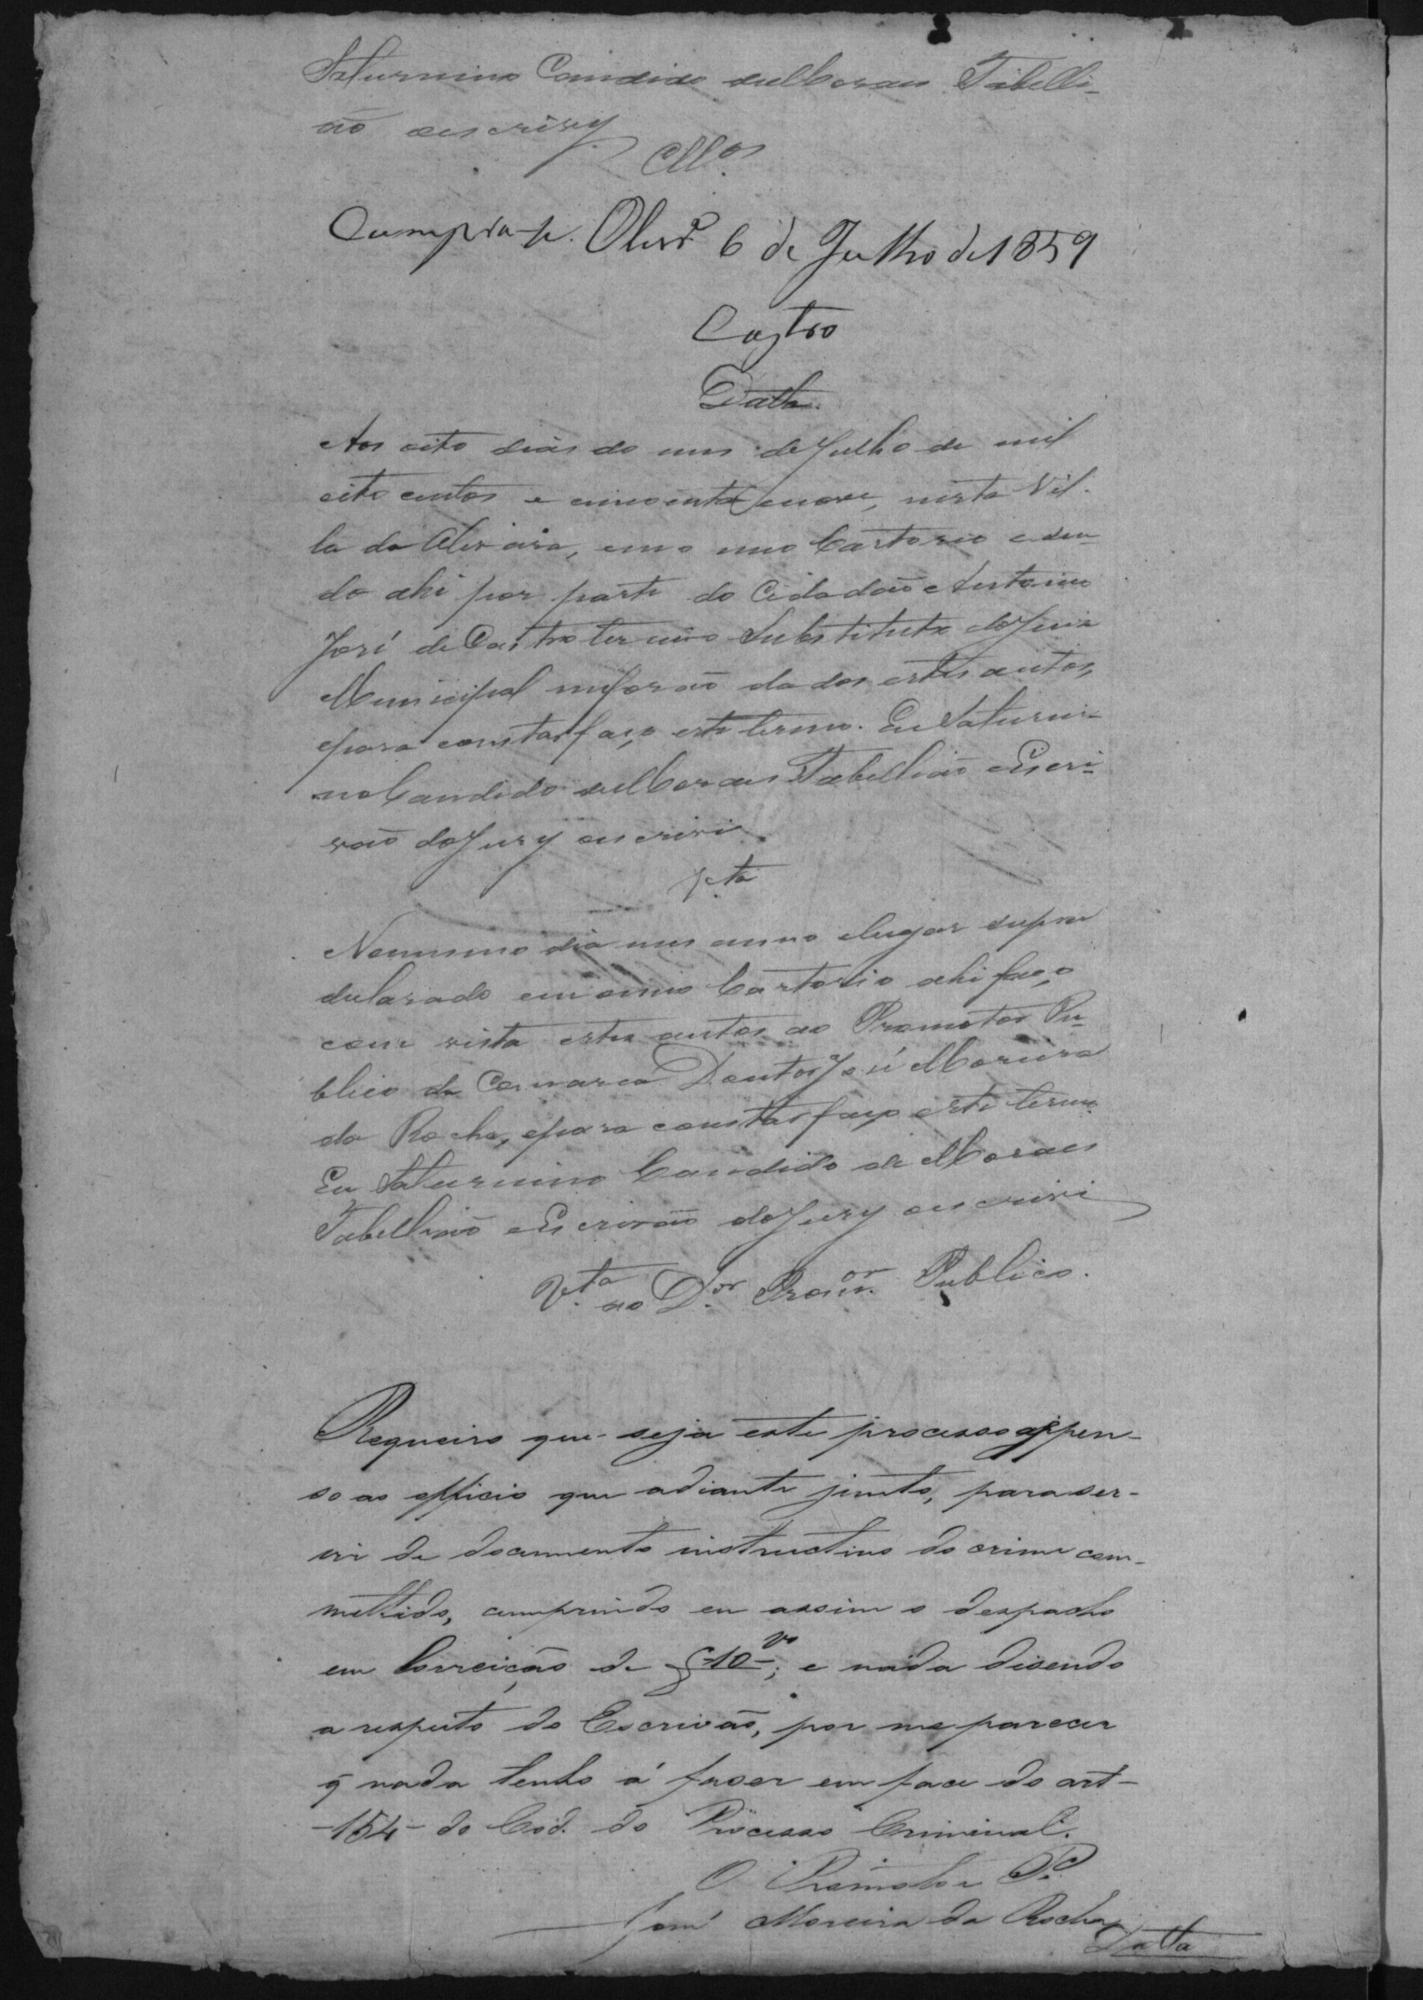 Saturnino Candido de Moraes Tabelli-
ão oescrivy
Cll.os
Cumpra-se. Olivrª 6 de Julho de 1859
Castro
Data.
Aos oito dias do mes de Julho de mil
oito centos e cincoenta enove, nesta Vil-
la da Oliveira, em o meo Cartorio e sen-
do ahi por parte do Cidadaõ Antonio
José de Castro terceiro Substituto do Juiz
Municipal me foraõ dados estes autos,
epara constar faço este termo. Eu Saturni-
no Candido de Moraes Tabelliaõ e Escri-
vaõ do Jury o escrivi.
V.ta
No mesmo dia mes anno e lugar supra
declarado em o meo Cartorio ahi faço
com vista estes autos ao Promotor Pu-
blico da Comarca Doutor José Moreira
da Rocha, epara constar faço este termo.
Eu Saturnino Candido de Moraes
Tabelliaõ e Escrivaõ do Jury o escrivi
V.ta ao D.or Prom.or Publico.
Requeiro que seja este processo appen-
so ao officio que adiante junto, para ser-
vir de documento instructivo do crime com-
mettido, cumprindo eu assim o despacho
em Correição de f 10 vº; e nada disendo
a respeito do Escrivaõ, por me parecer
q̃ nada tenho á faser em face do art-
-154- do Cod. do Processo Criminal.
O Promotor P.co
José Moreira da Rocha
Data